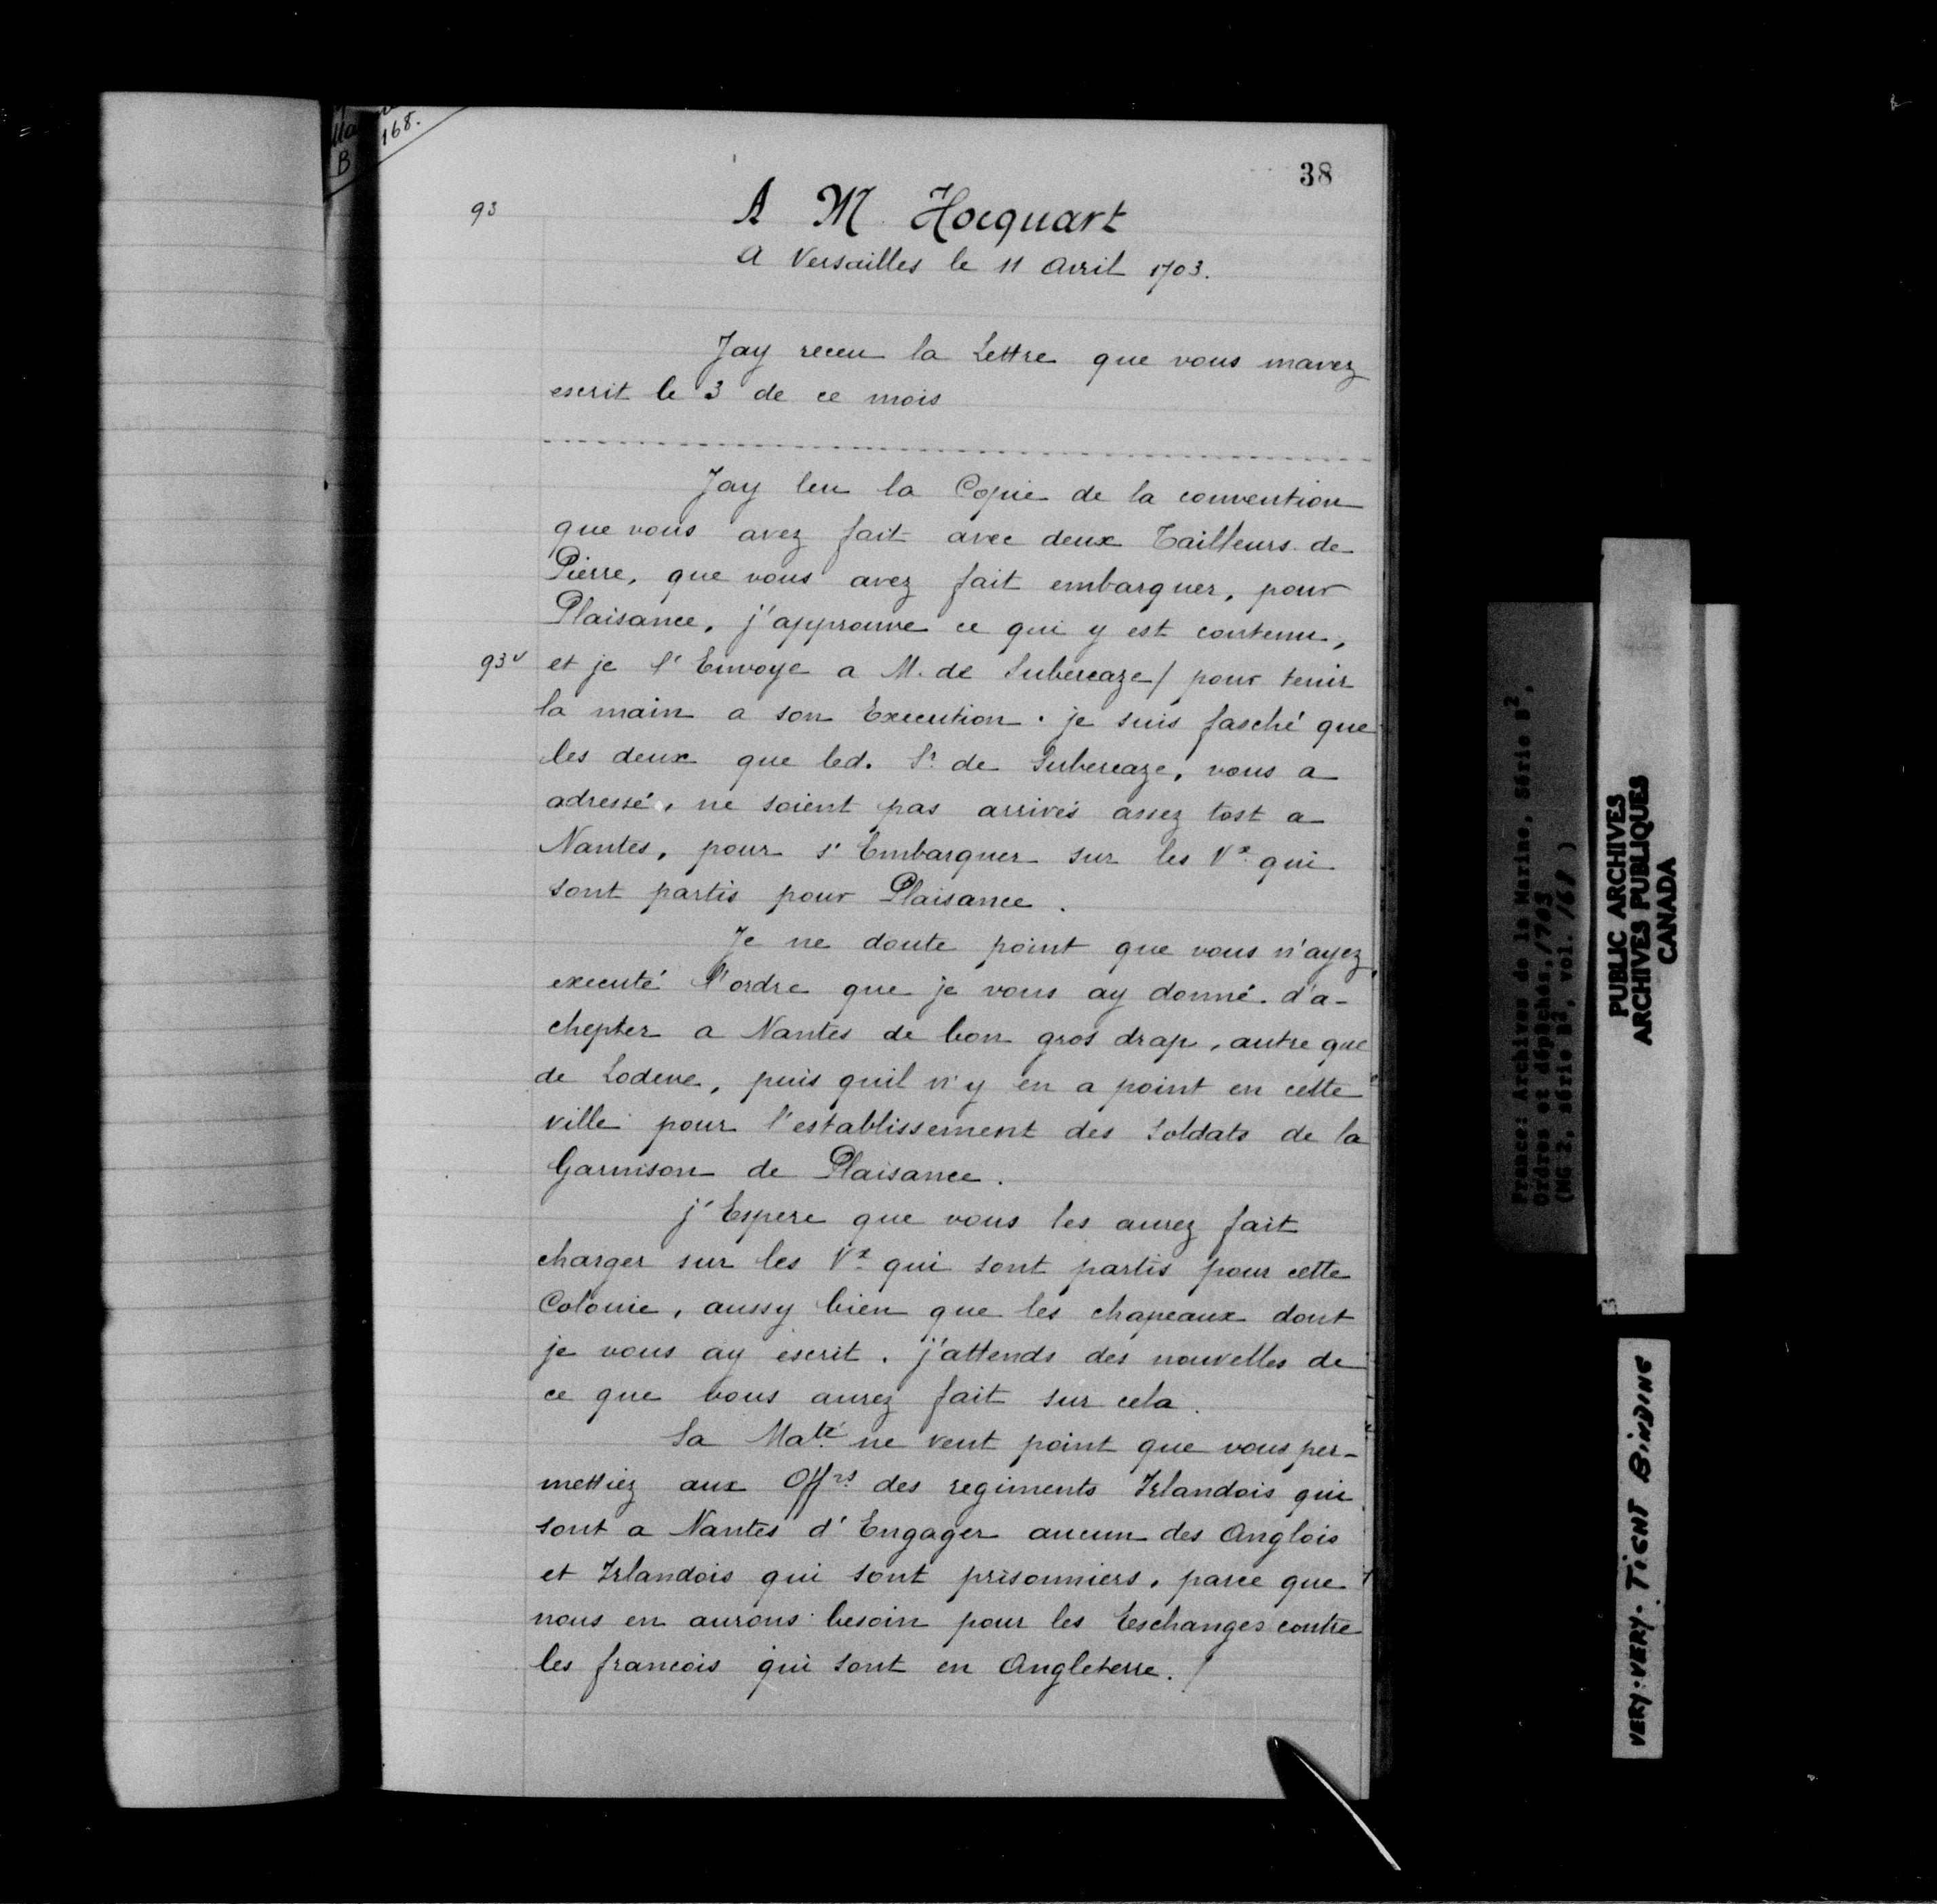 168.
B
38
93
A M Hocquart
A Versailles le 11 Avril 1703.
Jay receu la Lettre que vous mavez
escrit le 3 de ce mois
Jay leu la Copie de la convention
que vous avez fait avec deux Tailleurs de
Pierre, que vous avez fait embarquer, pour
Plaisance, j'approuve ce qui y est contenu,
93v et je l'Envoye a M. de Subercaze / pour tenir
la main a son Execution. je suis fasché que
les deux que led. Sr. de Subercaze, vous a
adressé, ne soient pas arrivés assez tost a
Nantes, pour s'Embarquer sur les Vx. qui
sont partis pour Plaisance.
Je ne doute point que vous n'ayez
executé l'ordre que je vous ay donné d'a-
chepter a Nantes de bon gros drap, autre que
de Lodeve, puis quil n'y en a point en cette
ville pour l'establissement des Soldats de la
Garnison de Plaisance.
j'Espere que vous les aurez fait
charger sur les Vx. qui sont partis pour cette
Colonie, aussy bien que les chapeaux dont
je vous ay escrit. j'attends des nouvelles de
ce que vous aurez fait sur cela.
Sa Maté. ne veut point que vous per-
mettiez aux Offrs. des regiments Irlandois qui
sont a Nantes d'Engager aucun des Anglois
et Irlandois qui sont prisonniers, parce que
nous en aurons besoin pour les Eschanges contre
les francois qui sont en Angleterre. /
France: Archives de la Marine, Série B2,
Ordres et dépêches, 1703
(MG 2, série B2, vol. 168 )
PUBLIC ARCHIVES
ARCHIVES PUBLIQUES
CANADA
VERY-VERY-TIGHT BINDING